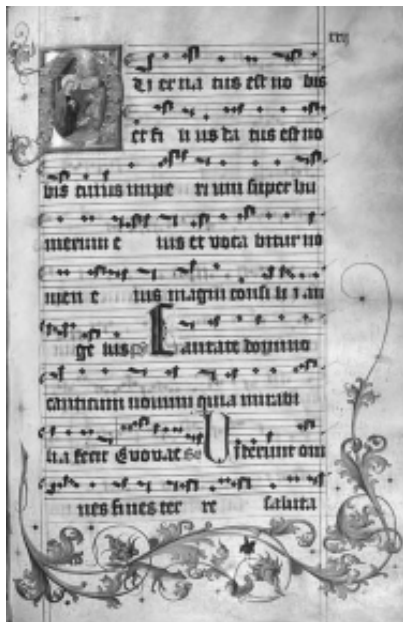 xxij
Uer na tus est no bis
et fi li us da tus est no
bis cuius impe ri um super hu
merum e ius et voca bitur no
men e ius magni consi li i an
ge lus ps Cantate domino
canticum novum quia mirabi
lia fecit Evovae Viderunt om
nes fines ter re saluta